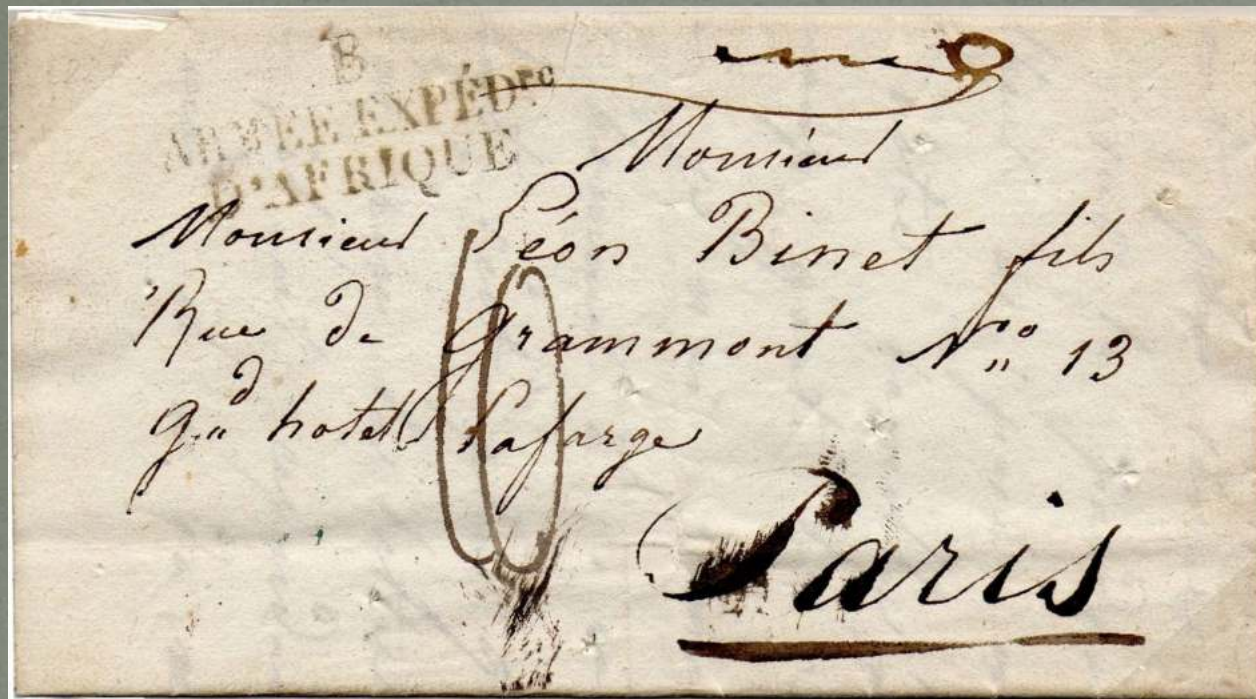 B
ARMÉE EXPÉDre
D'AFRIQUE
Monsieur
Monsieur Léon Binet fils
Rue de grammont No 13
gd hotel Lafarge
Paris